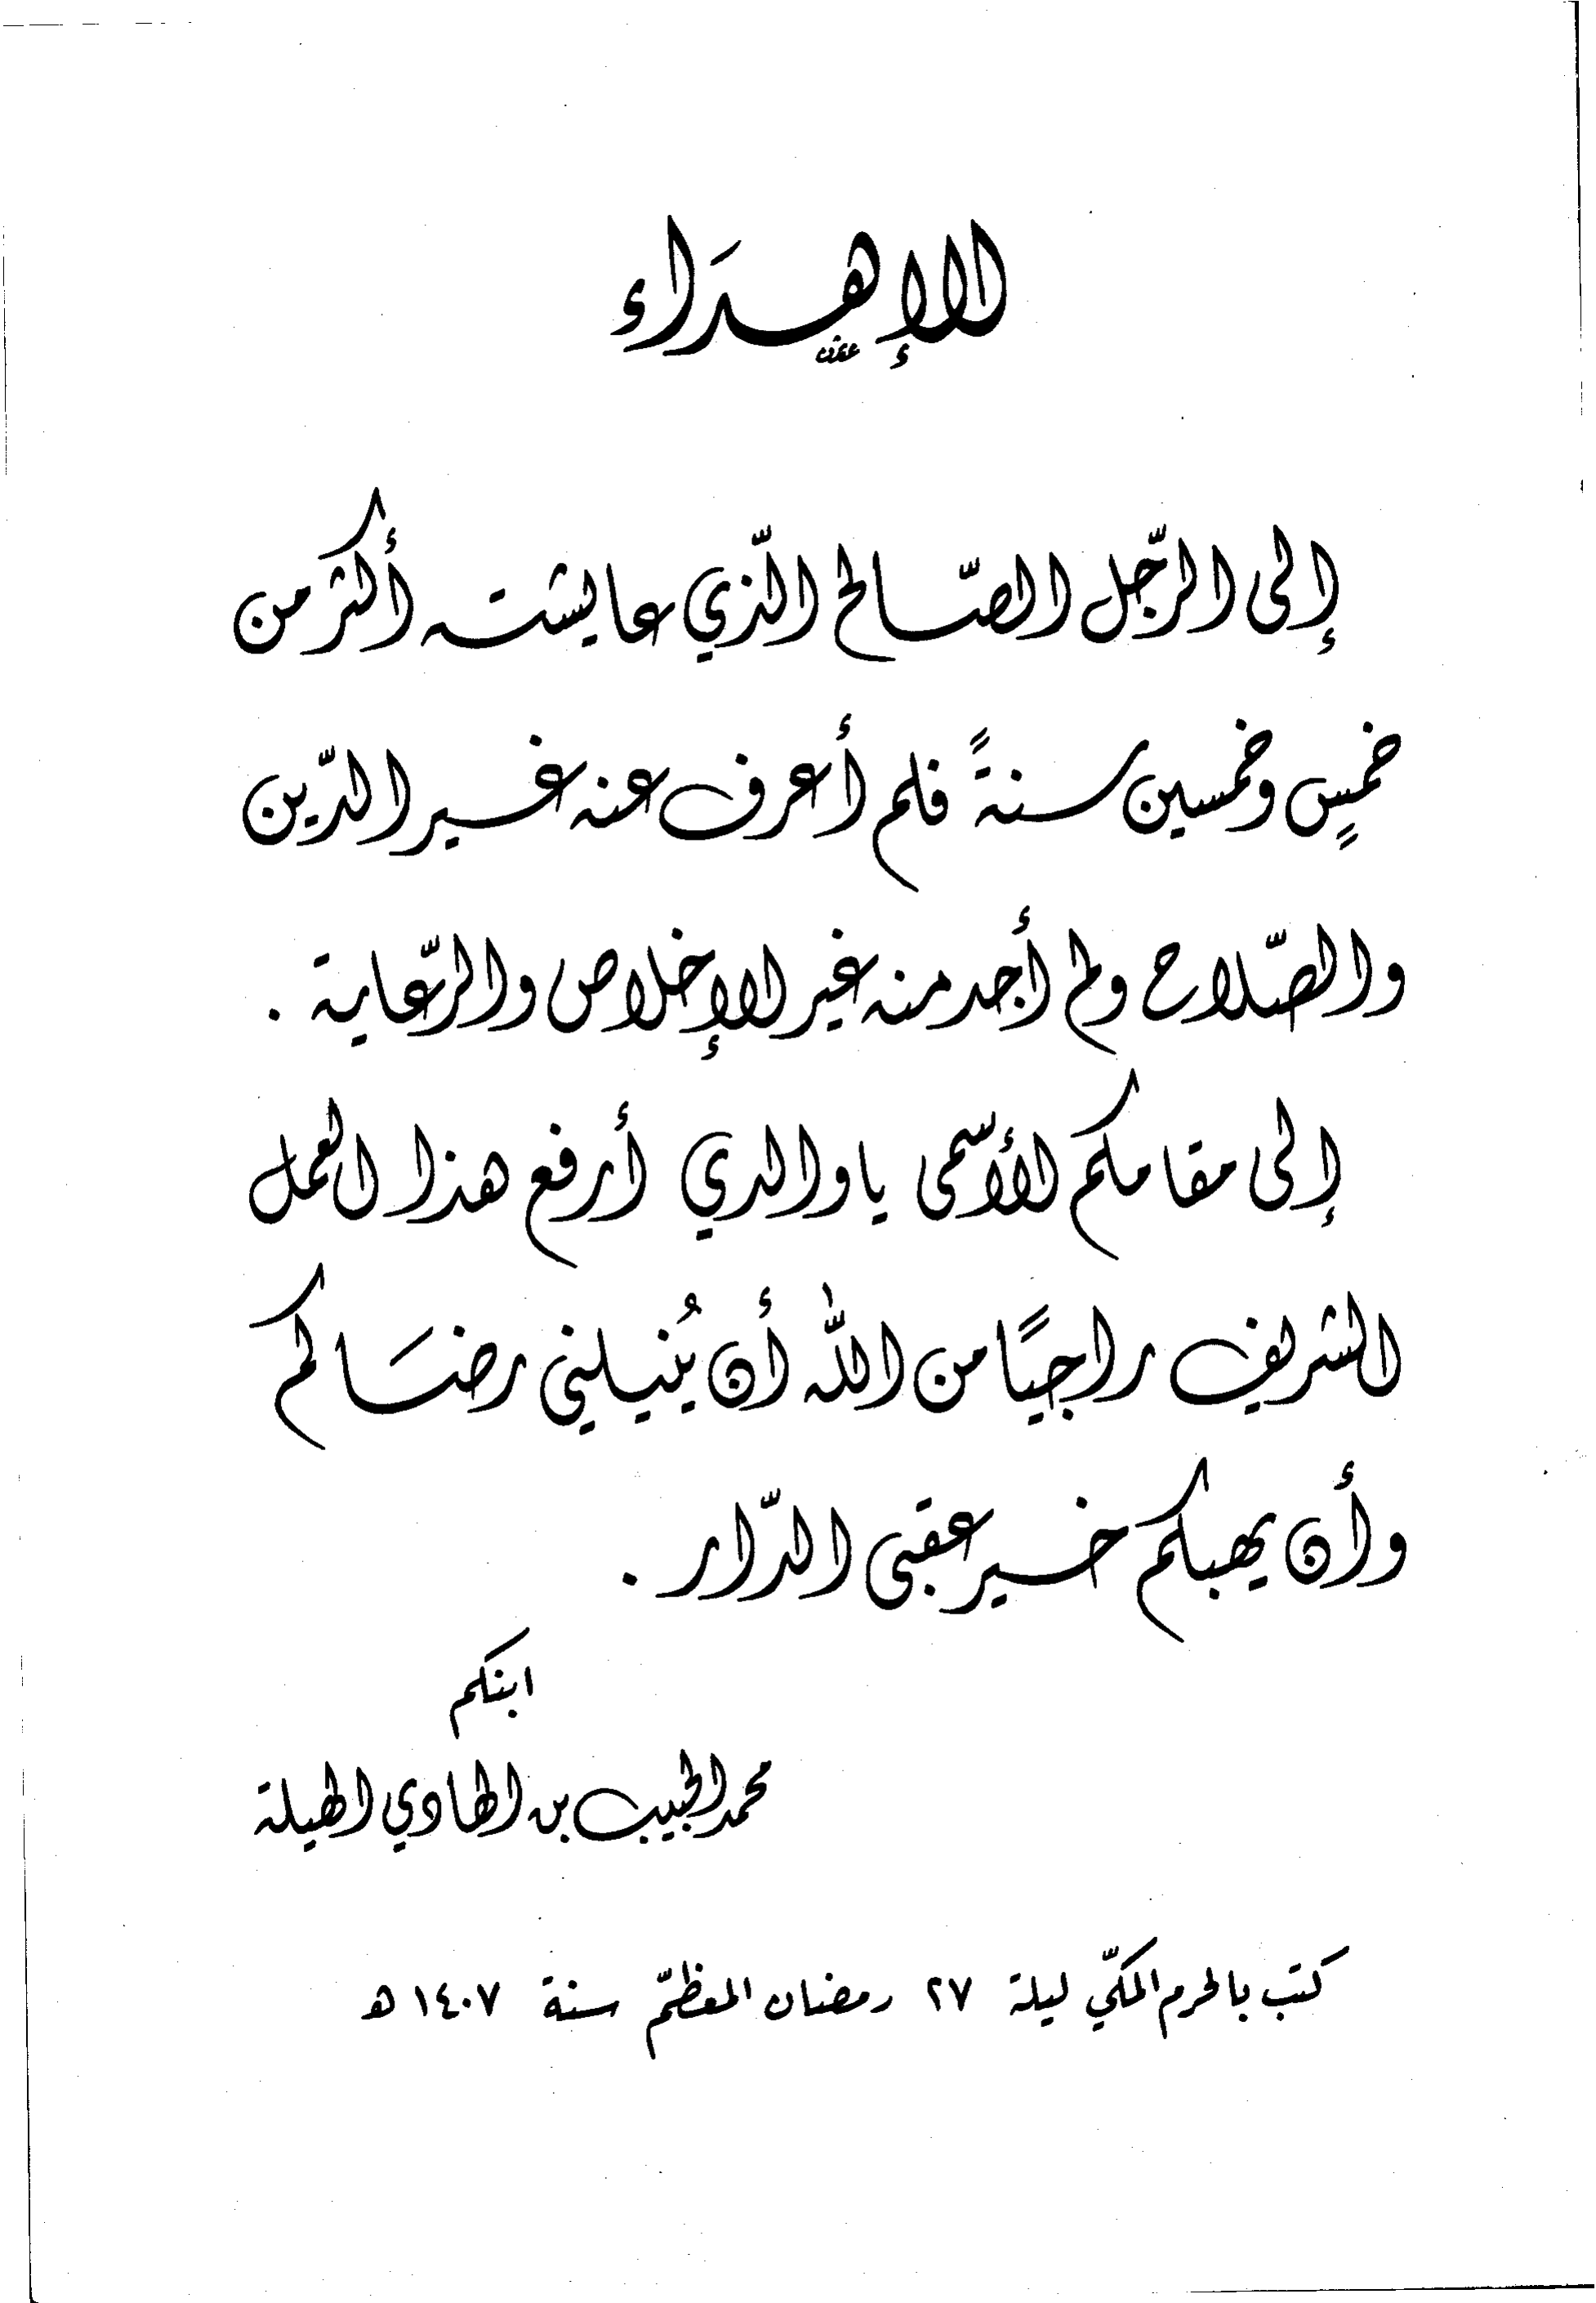 الإهداء
إلى الرّجل الصّالح الّذي عايشته أكثر من
خمسٍ وخمسين سنةً فلم أعرف عنه غير الدّين
والصّلاح ولم أجد منه غير الإخلاص والرّعاية .
إلى مقامكم الأسمى يا والدي أرفع هذا العمل
الشريف راجيًا من اللّه أن يُنيلني رضَاكم
وأن يهبكم خير عقبى الدّار .
ابنكم
محمد الحبيب بن الهادي الهيلة
كتب بالحرم المكّي ليلة ٢٧ رمضان المعظّم سنة ١٤٠٧ هـ